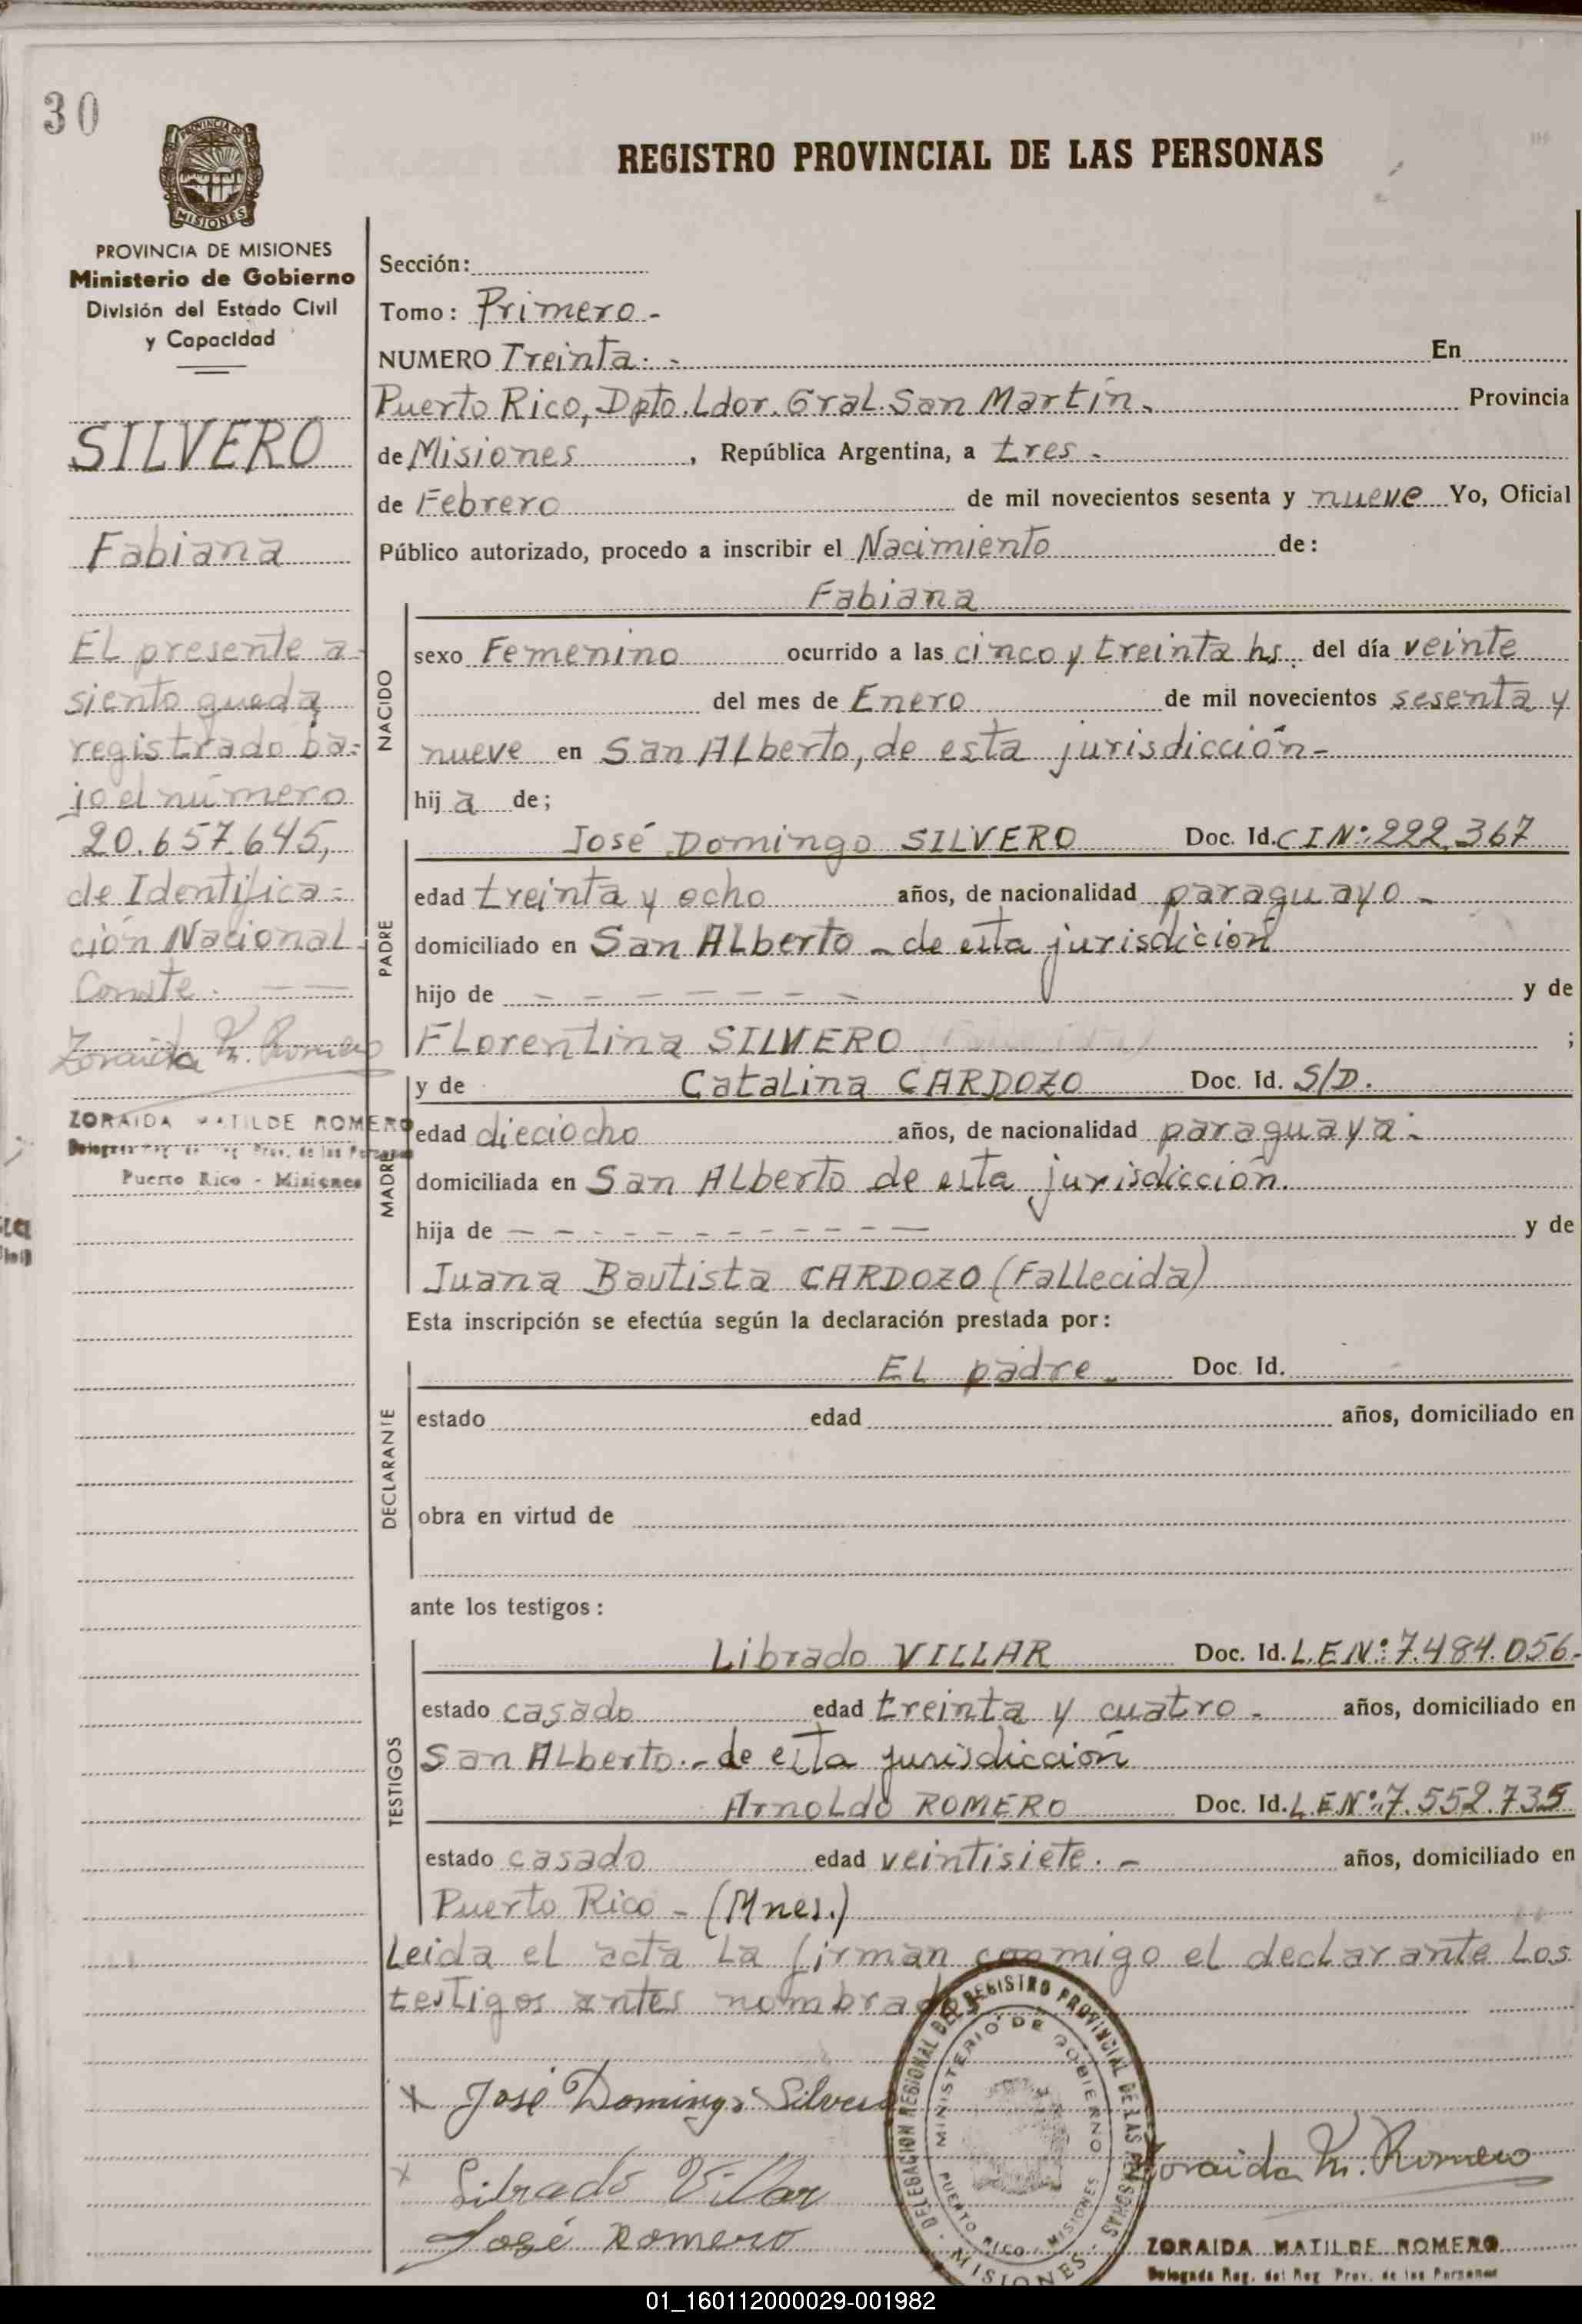 30
PROVINCIA DE MISIONES
PROVINCIA DE MISIONES
Ministerio de Gobierno
División del Estado Civil
y Capacidad
SILVERO
Fabiana
El presente a-
siento queda
registrado ba=
jo el número
20.657.645,
de Identifica=
ción Nacional
Conste. — —
Zoraida M. Romero
ZORAIDA MATILDE ROMERO
Delegada Reg. del Reg. Prov. de las Personas
Puerto Rico - Misiones
REGISTRO PROVINCIAL DE LAS PERSONAS
Sección:
Tomo: Primero.-
NUMERO Treinta.- En
Puerto Rico, Dpto. Ldor. Gral. San Martín. Provincia
de Misiones, República Argentina, a tres.-
de Febrero de mil novecientos sesenta y nueve Yo, Oficial
Público autorizado, procedo a inscribir el Nacimiento de:
NACIDO
Fabiana
sexo Femenino ocurrido a las cinco y treinta hs. del día veinte
del mes de Enero de mil novecientos sesenta y
nueve en San Alberto, de esta jurisdicción-
hij a de;
PADRE
José Domingo SILVERO Doc. Id. CIN°:222.367
edad treinta y ocho años, de nacionalidad paraguayo -
domiciliado en San Alberto - de esta jurisdicción
hijo de - - - - - - - y de
Florentina SILVERO ;
MADRE
y de Catalina CARDOZO Doc. Id. S/D.
edad dieciocho años, de nacionalidad paraguaya.-
domiciliada en San Alberto de esta jurisdicción.
hija de - - - - - - - - - - - y de
Juana Bautista CARDOZO (Fallecida)
Esta inscripción se efectúa según la declaración prestada por:
DECLARANTE
El padre.- Doc. Id.
estado edad años, domiciliado en
obra en virtud de
ante los testigos:
TESTIGOS
Librado VILLAR Doc. Id. L.E.N°:7.484.056-
estado casado edad treinta y cuatro.- años, domiciliado en
San Alberto.- de esta jurisdicción
Arnoldo ROMERO Doc. Id. L.E.N°:7.552.735
estado casado edad veintisiete.- años, domiciliado en
Puerto Rico - (Mnes.)
Leida el acta la firman conmigo el declarante los
testigos antes nombrados
x José Domingo Silvero
x Librado Villar
José Romero
DELEGACION REGIONAL DEL REGISTRO PROVINCIAL DE LAS PERSONAS
MINISTERIO DE GOBIERNO
PUERTO RICO - MISIONES
MISIONES
Zoraida M. Romero
ZORAIDA MATILDE ROMERO
Delegada Reg. del Reg. Prov. de las Personas
01_160112000029-001982